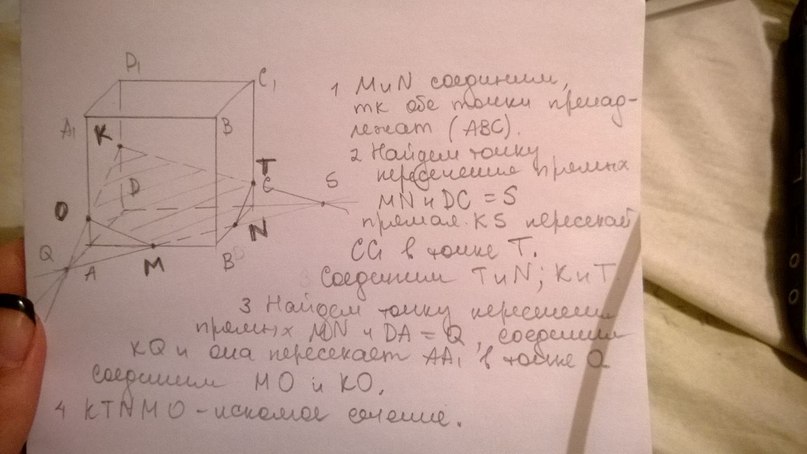 D₁
C₁
A₁
K
B
T
C
S
D
O
N
Q
A
M
B
1 M и N соединим,
тк обе точки принад-
лежат (АВС).
2 Найдем точку
пересечения прямых
MN и DC = S
прямая KS пересекай
CC₁ в точке T.
Соединим T и N; K и T
3 Найдем точку пересечения
прямых MN и DA = Q, соединим
KQ и она пересекает AA₁ в точке O
соединим MO и KO.
4 KTNMO - искомое сечение.